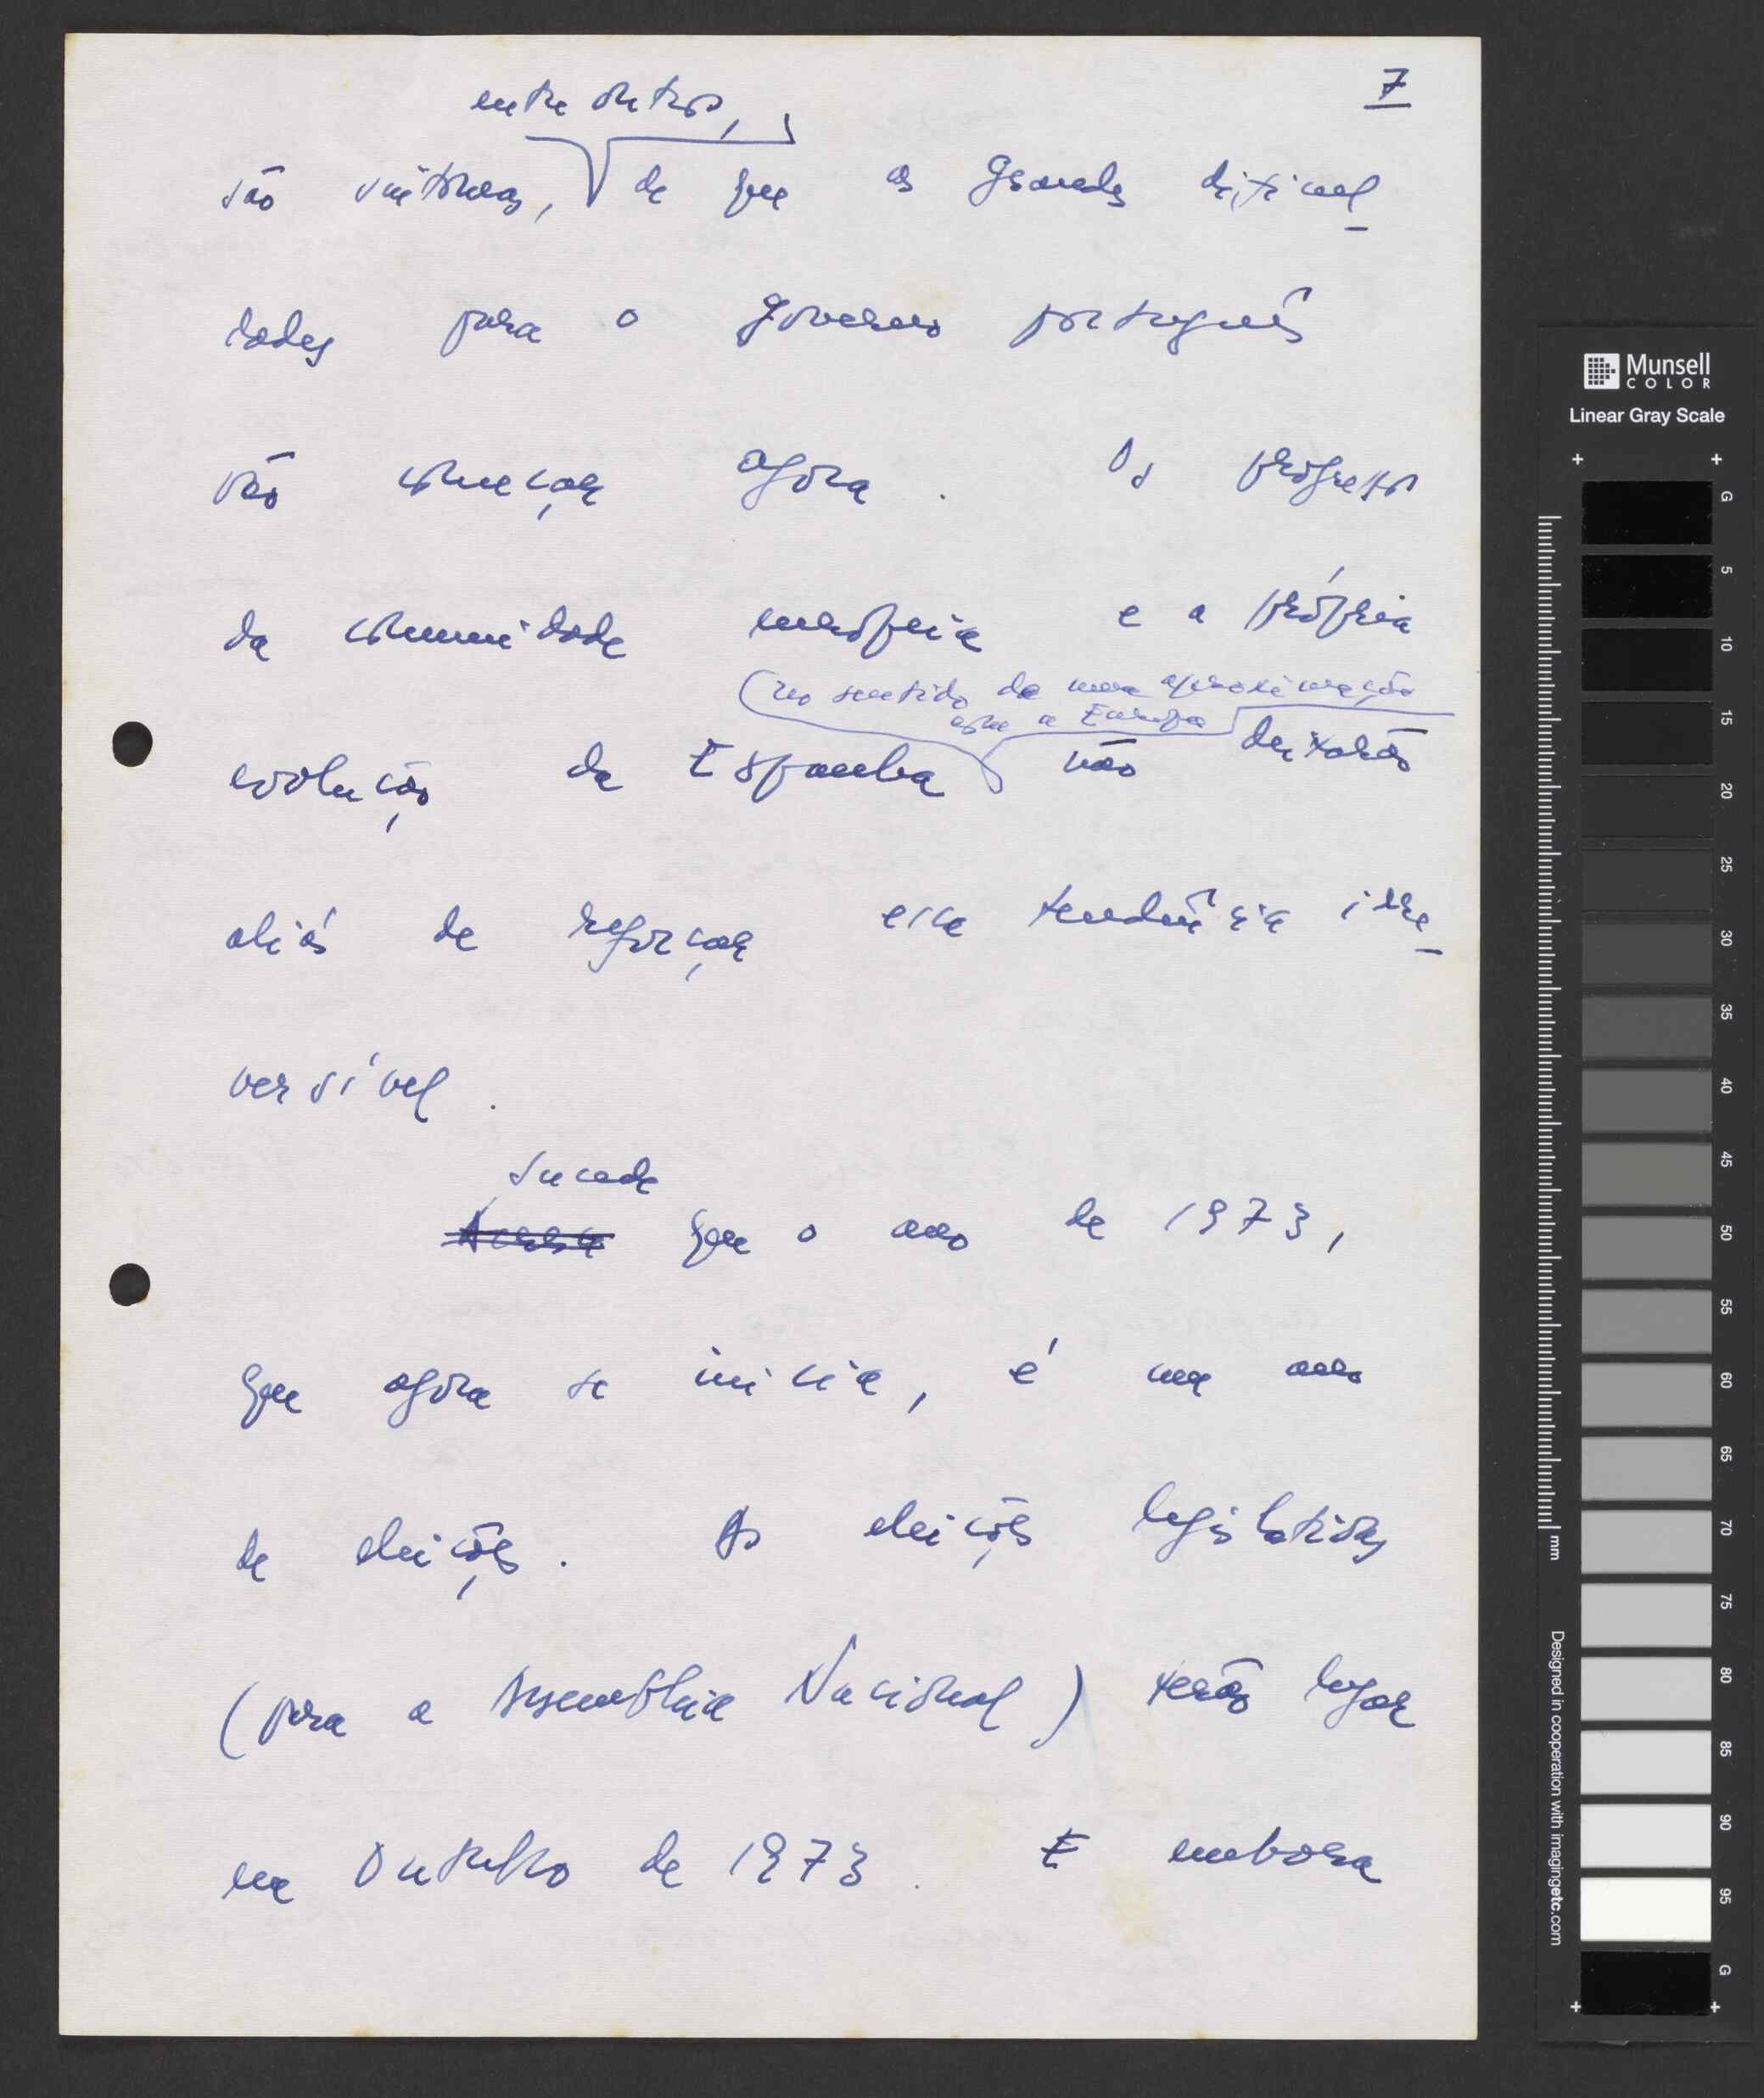 7
entre outros,
são sintomas, de que as grandes dificul-
dades para o governo português
vão começar agora. Os progressos
da comunidade europeia e a própria
(no sentido de uma aproximação
com a Europa
evolução da Espanha não deixarão
aliás de reforçar essa tendência irre-
versível.
Sucede
que o ano de 1973,
que agora se inicia, é um ano
de eleições. As eleições legislativas
(para a Assembleia Nacional) terão lugar
em Outubro de 1973. E embora
Munsell
COLOR
Linear Gray Scale
G
5
10
15
20
25
30
35
40
45
50
55
60
65
70
75
80
85
90
95
G
mm
Designed in cooperation with imagingetc.com